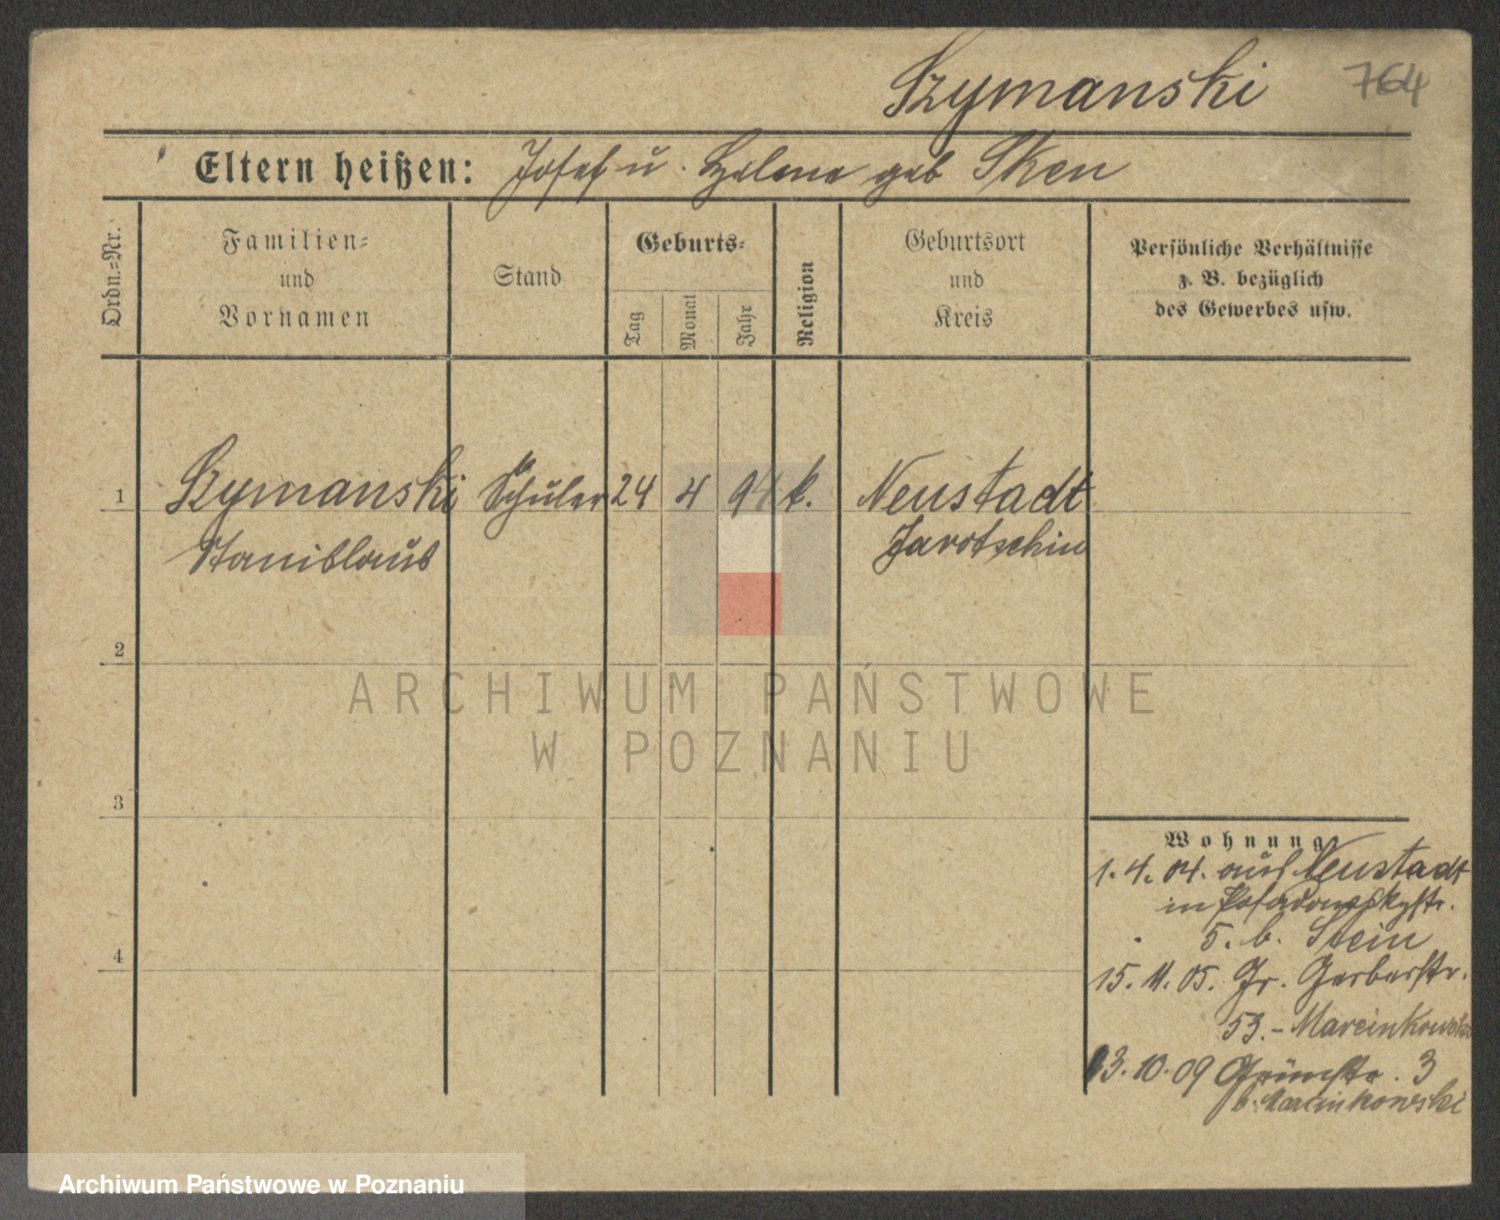 Szymanski 764
Eltern heißen: Josef u. Helene geb Sken
Ordn.=Nr.
Familien=
und
Vornamen
Stand
Geburts=
Tag
Monat
Jahr
Religion
Geburtsort
und
Kreis
Persönliche Verhältnisse
z. B. bezüglich
des Gewerbes usw.
1 Szymanski Schüler 24 4 94 k. Neustadt
Stanislaus Jarotschin
2
3
4
Wohnung
1. 4. 04. aus Neustadt
in Posadowskystr.
5. b. Stein
15. 11. 05. Gr. Gerberstr.
53.- Marcinkowska
13. 10. 09 Grünstr. 3
b. Marcinkowski
ARCHIWUM PAŃSTWOWE
W POZNANIU
Archiwum Państwowe w Poznaniu